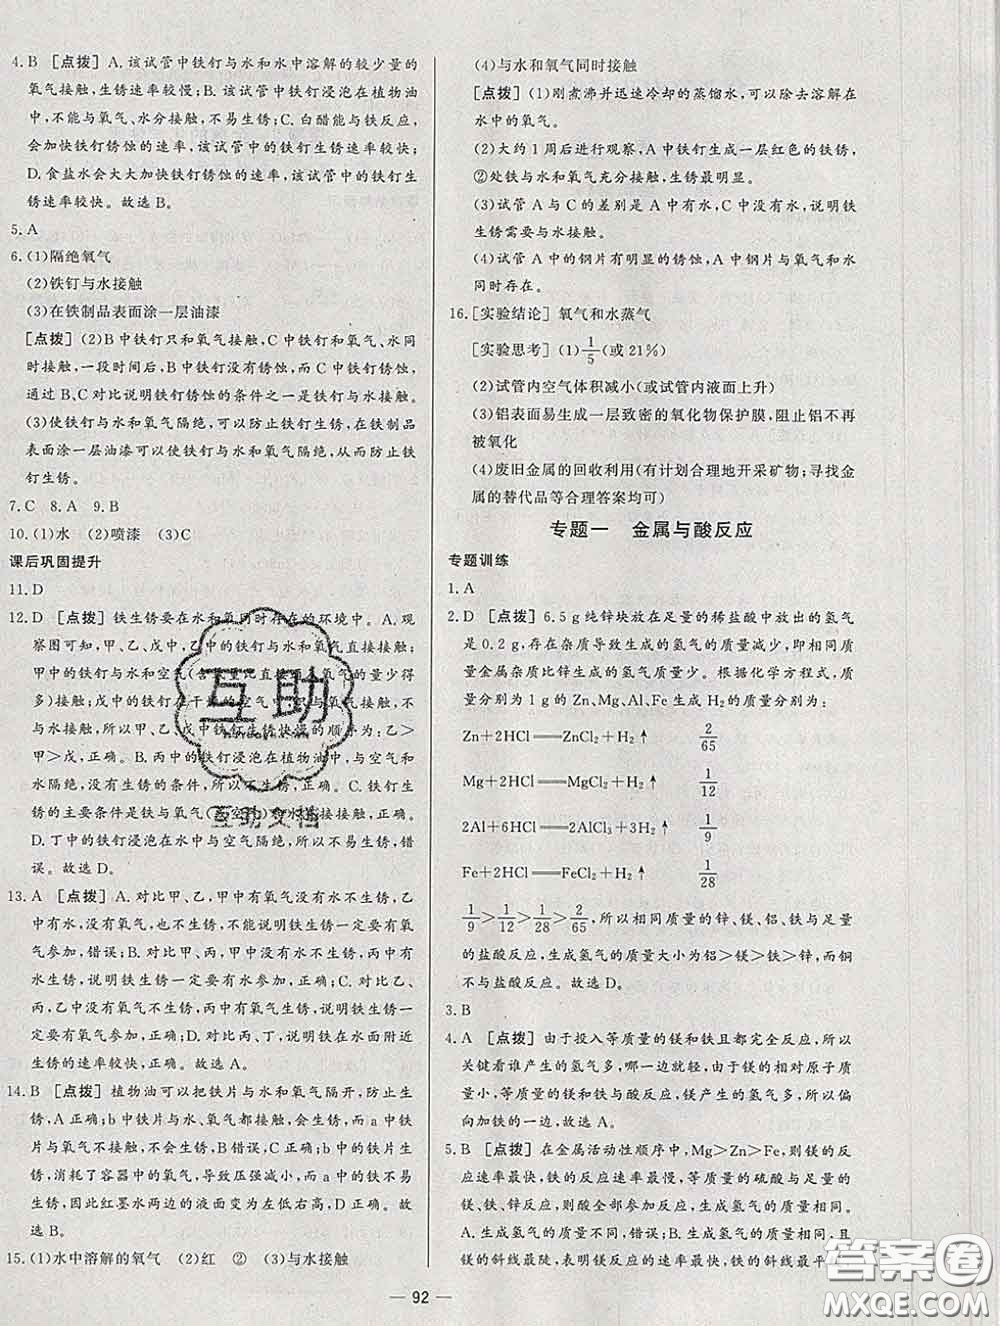 4. B [点拨] A. 该试管中铁钉与水和水中溶解的较少量的
氧气接触,生锈速率较慢;B. 该试管中铁钉浸泡在植物油
中,不能与氧气、水分接触,不易生锈;C. 白醋能与铁反应,
会加快铁钉锈蚀的速率,该试管中的铁钉生锈速率较快;
D. 食盐水会大大加快铁钉锈蚀的速率,该试管中的铁钉生
锈速率较快。故选 B。
5. A
6. (1)隔绝氧气
(2)铁钉与水接触
(3)在铁制品表面涂一层油漆
[点拨] (2)B 中铁钉只和氧气接触,C 中铁钉与氧气、水同
时接触,一段时间后,B 中铁钉没有锈蚀,而 C 中铁钉锈蚀,
通过 B、C 对比说明铁钉锈蚀的条件之一是铁钉与水接触。
(3)使铁钉与水和氧气隔绝,可以防止铁钉生锈,在铁制品
表面涂一层油漆可以使铁钉与水和氧气隔绝,从而防止铁
钉生锈。
7. C 8. A 9. B
10. (1)水 (2)喷漆 (3)C
课后巩固提升
11. D
12. D [点拨] 铁生锈要在水和氧同时存在的环境中。A. 观
察图可知,甲、乙、戊中,乙中的铁钉与水和氧气直接接触;
甲中的铁钉与水和空气(含
多)接触;戊中铁钉在干燥的空
与水接触,所以甲、乙、戊中铁钉生锈快慢的顺序为:乙>
甲>戊,正确。B. 丙中的铁钉浸泡在植物油中,与空气和
水隔绝,所以不生锈,正确。C. 铁钉生
锈的主要条件是铁与氧气(或空气)和水直接接触,正确。
D. 丁中的铁钉浸泡在水中与空气隔绝,所以不生锈,错
误。故选 D。
13. A [点拨] A. 对比甲、乙,甲中有氧气没有水不生锈,乙
中有水,没有氧气,也不生锈,不能说明铁生锈一定要有氧
气参加,错误;B. 对比甲、丙,甲中没有水不生锈,丙中有
水生锈,说明铁生锈一定要有水参加,正确;C. 对比乙、
丙,乙中没有氧气不生锈,丙中有氧气生锈,说明铁生锈一
定要有氧气参加,正确;D. 对比丙、丁,说明铁在水面附近
生锈的速率较快,正确。故选 A。
14. B [点拨] 植物油可以把铁片与水和氧气隔开,防止生
锈,A 正确;b 中铁片与水、氧气都接触,会生锈,而 a 中铁
片与氧气不接触,不会生锈,B 错误,C 正确;b 中的铁片生
锈,消耗了容器中的氧气,导致压强减小,而 a 中的铁片不
生锈,因此红墨水两边的液面变为左低右高,D 正确。故
选 B。
15. (1)水中溶解的氧气 (2)红 ② (3)与水接触
(4)与水和氧气同时接触
[点拨] (1)刚煮沸并迅速冷却的蒸馏水,可以除去溶解在
水中的氧气。
(2)大约 1 周后进行观察,A 中铁钉生成一层红色的铁锈,
②处铁与水和氧气充分接触,生锈最明显。
(3)试管 A 与 C 的差别是 A 中有水,C 中没有水,说明铁
生锈需要与水接触。
(4)试管 A 中的钢片有明显的锈蚀,A 中钢片与氧气和水
同时存在。
16. [实验结论] 氧气和水蒸气
[实验思考] (1)1/5(或 21%)
(2)试管内空气体积减小(或试管内液面上升)
(3)铝表面易生成一层致密的氧化物保护膜,阻止铝不再
被氧化
(4)废旧金属的回收利用(有计划合理地开采矿物;寻找金
属的替代品等合理答案均可)
专题一 金属与酸反应
专题训练
1. A
2. D [点拨] 6.5 g 纯锌块放在足量的稀盐酸中放出的氢气
是 0.2 g,存在杂质导致生成的氢气的质量减少,即相同质
量金属杂质比锌生成的氢气质量少。根据化学方程式,质
量分别为 1 g 的 Zn、Mg、Al、Fe 生成 H₂ 的质量分别为:
Zn+2HCl══ZnCl₂+H₂↑ 2/65
Mg+2HCl══MgCl₂+H₂↑ 1/12
2Al+6HCl══2AlCl₃+3H₂↑ 1/9
Fe+2HCl══FeCl₂+H₂↑ 1/28
1/9>1/12>1/28>2/65,所以相同质量的锌、镁、铝、铁与足量
的盐酸反应,生成氢气的质量大小为铝>镁>铁>锌,而铜
不与盐酸反应。故选 D。
3. B
4. A [点拨] 由于投入等质量的镁和铁且都完全反应,所以
关键看谁产生的氢气多,哪一边就轻一些。由于镁的相对原子质
量小,等质量的镁和铁与酸反应,镁产生的氢气多,所以指针偏
向加铁的一边,故选 A。
5. B [点拨] 在金属活动性顺序中,Mg>Zn>Fe,则镁的反
应速率最快,铁的反应速率最慢。等质量的硫酸与足量的
镁、铁、锌反应,则酸完全反应,生成氢气的质量相同。
A. 生成氢气的质量不同,错误;B. 生成氢气的质量相同,且
镁的斜线最陡,表示镁反应速率最快,铁的斜线最平
92
互助
互助文档
答案圈
MXQE.COM